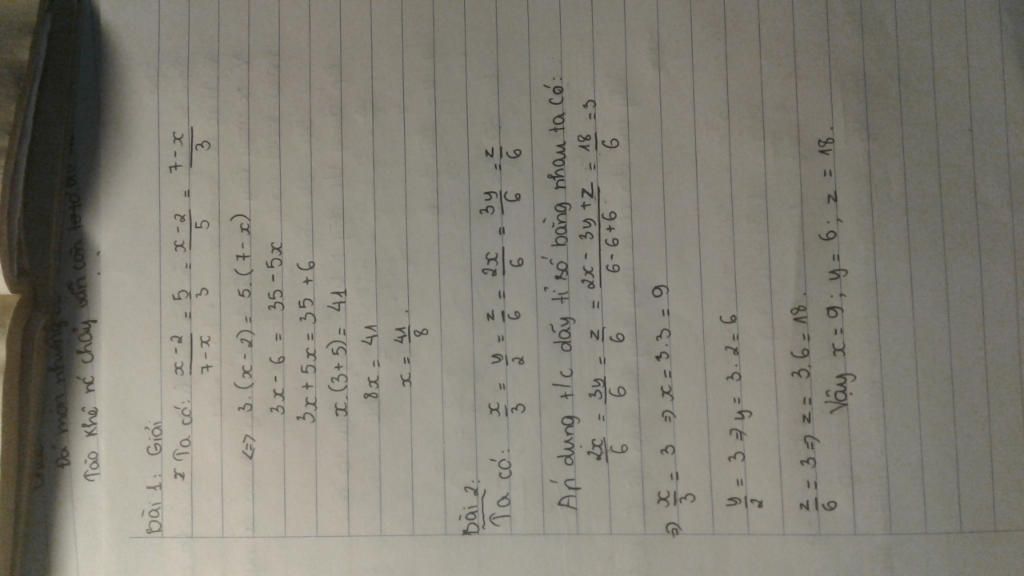 Đó món nhưng
Táo khế né chảy vẫn còn
bài 1: Giải
Ta có: \frac{x-2}{7-x} = \frac{5}{3} = \frac{x-2}{5} = \frac{7-x}{3}
<=> 3.(x-2) = 5.(7-x)
3x - 6 = 35 - 5x
3x + 5x = 35 + 6
x.(3+5) = 41
8x = 41
x = \frac{41}{8}.
bài 2:
Ta có: \frac{x}{3} = \frac{y}{2} = \frac{z}{6} = \frac{2x}{6} = \frac{3y}{6} = \frac{z}{6}
Áp dụng t/c dãy tỉ số bằng nhau ta có:
\frac{2x}{6} = \frac{3y}{6} = \frac{z}{6} = \frac{2x-3y+z}{6-6+6} = \frac{18}{6} = 3
=> \frac{x}{3} = 3 => x = 3.3 = 9
\frac{y}{2} = 3 => y = 3.2 = 6
\frac{z}{6} = 3 => z = 3.6 = 18.
Vậy x = 9; y = 6; z = 18.